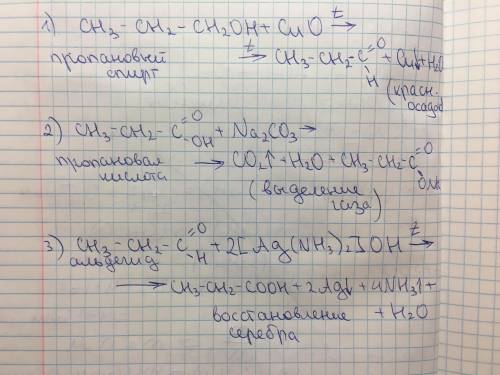 1) CH₃ – CH₂ – CH₂OH + CuO t→
пропановый t→ CH₃–CH₂–C=O H + Cu↓ + H₂O
спирт (красн. осадок
2) CH₃–CH₂–C=O OH + Na₂CO₃ →
пропановая → CO₂↑ + H₂O + CH₃–CH₂–C=O ONa
кислота (выделение газа)
3) CH₃–CH₂–C=O H + 2[Ag(NH₃)₂]OH t→
альдегид
→ CH₃–CH₂–COOH + 2Ag↓ + 4NH₃↑ +
восстановление + H₂O
серебра